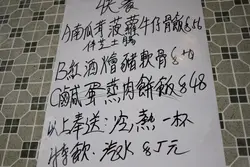 快餐
A南瓜芽菠蘿牛仔骨飯$56
伴芝士腸
B紅酒燴豬軟骨$50
C鹹蛋蒸肉餅飯$48
以上奉送:冷、熱一杯
特飲:汽水$5元